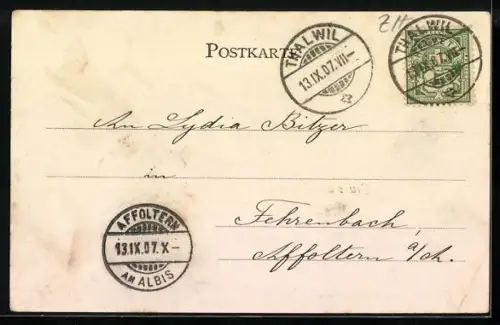 ZH
POSTKARTE
THALWIL
13.IX.07.VII–
THALWIL
An Lydia Bitzer
in
Fehrenbach,
Affoltern a/A.
AFFOLTERN
13.IX.07.X–
AM ALBIS